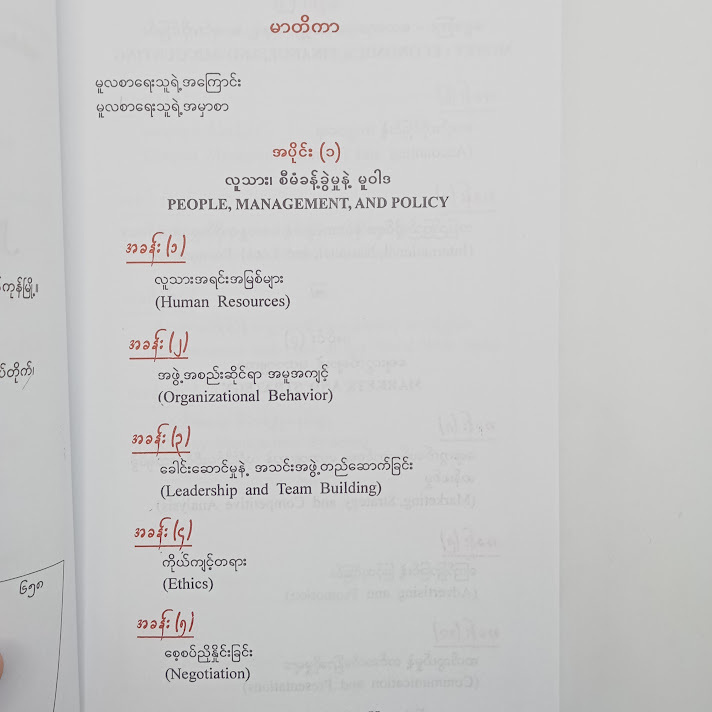 မာတိကာ
မူလစာရေးသူရဲ့အကြောင်း
မူလစာရေးသူရဲ့အမှာစာ
အပိုင်း (၁)
လူသား၊ စီမံခန့်ခွဲမှုနဲ့ မူဝါဒ
PEOPLE, MANAGEMENT, AND POLICY
အခန်း (၁)
လူသားအရင်းအမြစ်များ
(Human Resources)
အခန်း (၂)
အဖွဲ့အစည်းဆိုင်ရာ အမူအကျင့်
(Organizational Behavior)
အခန်း (၃)
ခေါင်းဆောင်မှုနဲ့ အသင်းအဖွဲ့တည်ဆောက်ခြင်း
(Leadership and Team Building)
အခန်း (၄)
ကိုယ်ကျင့်တရား
(Ethics)
အခန်း (၅)
စေ့စပ်ညှိနှိုင်းခြင်း
(Negotiation)
၆၅၈